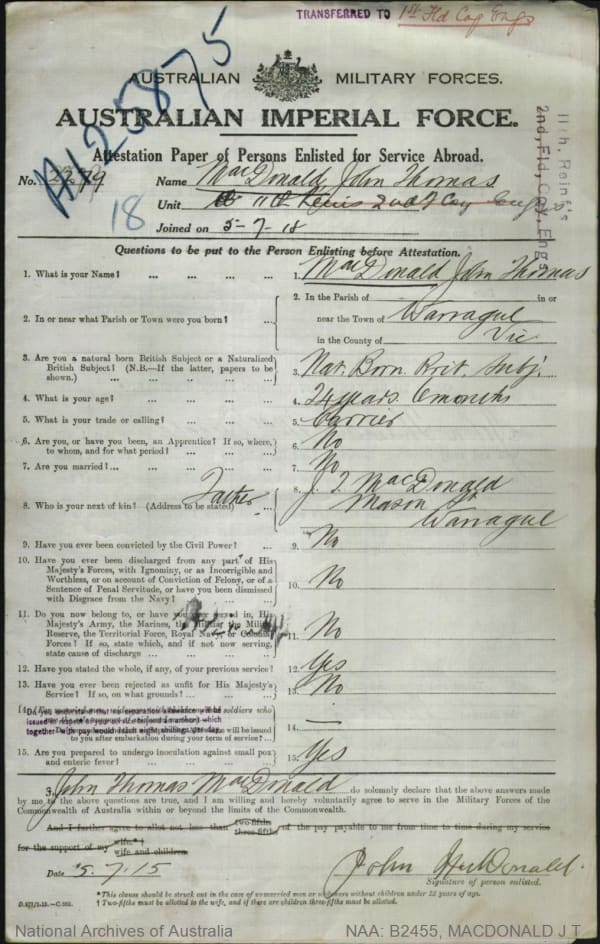 TRANSFERRED TO 1st Fld Coy Engs
A125875
AUSTRALIAN MILITARY FORCES.
AUSTRALIAN IMPERIAL FORCE.
Attestation Paper of Persons Enlisted for Service Abroad.
11th. Reinf's
2nd. Fld. Coy. Engs
No. Name MacDonald, John Thomas
18
Unit 11th Reins 2nd F Coy Engrs
Joined on 5-7-18
Questions to be put to the Person Enlisting before Attestation.
1. What is your Name? ... ... ... ... 1. MacDonald John Thomas
2. In or near what Parish or Town were you born? ...
2. In the Parish of in or
near the Town of Warragul
in the County of Vic
3. Are you a natural born British Subject or a Naturalized
British Subject? (N.B.—If the latter, papers to be
shown.) ... ... ... ... ...
3. Nat. Born Brit. Subj.
4. What is your age? ... ... ... ... 4. 24 years. 6 months
5. What is your trade or calling? ... ... ... 5. Carrier
6. Are you, or have you been, an Apprentice? If so, where,
to whom, and for what period? ... ... ...
6. No
7. Are you married? ... ... ... ... 7. No
Father
8. Who is your next of kin? (Address to be stated) ...
8. J. T. MacDonald
Mason St
Warragul
9. Have you ever been convicted by the Civil Power? ... 9. No
10. Have you ever been discharged from any part of His
Majesty's Forces, with Ignominy, or as Incorrigible and
Worthless, or on account of Conviction of Felony, or of a
Sentence of Penal Servitude, or have you been dismissed
with Disgrace from the Navy? ... ... ...
10. No
11. Do you now belong to, or have you ever served in, His
Majesty's Army, the Marines, the Militia, the Militia
Reserve, the Territorial Force, Royal Navy, or Colonial
Forces? If so, state which, and if not now serving,
state cause of discharge ... ... ...
11. No
12. Have you stated the whole, if any, of your previous service? 12. Yes
13. Have you ever been rejected as unfit for His Majesty's
Service? If so, on what grounds? ... ... ...
13. No
14. —
Do you understand that no separation allowance will be
issued in respect of your service
together with pay would reach eight shillings per day.
to you after embarkation during your term of service? ...
15. Are you prepared to undergo inoculation against small pox
and enteric fever? ... ... ... ...
15. Yes
I, John Thomas MacDonald do solemnly declare that the above answers made
by me to the above questions are true, and I am willing and hereby voluntarily agree to serve in the Military Forces of the
Commonwealth of Australia within or beyond the limits of the Commonwealth.
And I further agree to allot not less than two-fifths three-fifths of the pay payable to me from time to time during my service
for the support of my wife.*† wife and children
Date 5.7.15
John MacDonald.
Signature of person enlisted.
* This clause should be struck out in the case of unmarried men or widowers without children under 18 years of age.
† Two-fifths must be allotted to the wife, and if there are children three-fifths must be allotted.
National Archives of Australia
NAA: B2455, MACDONALD J T